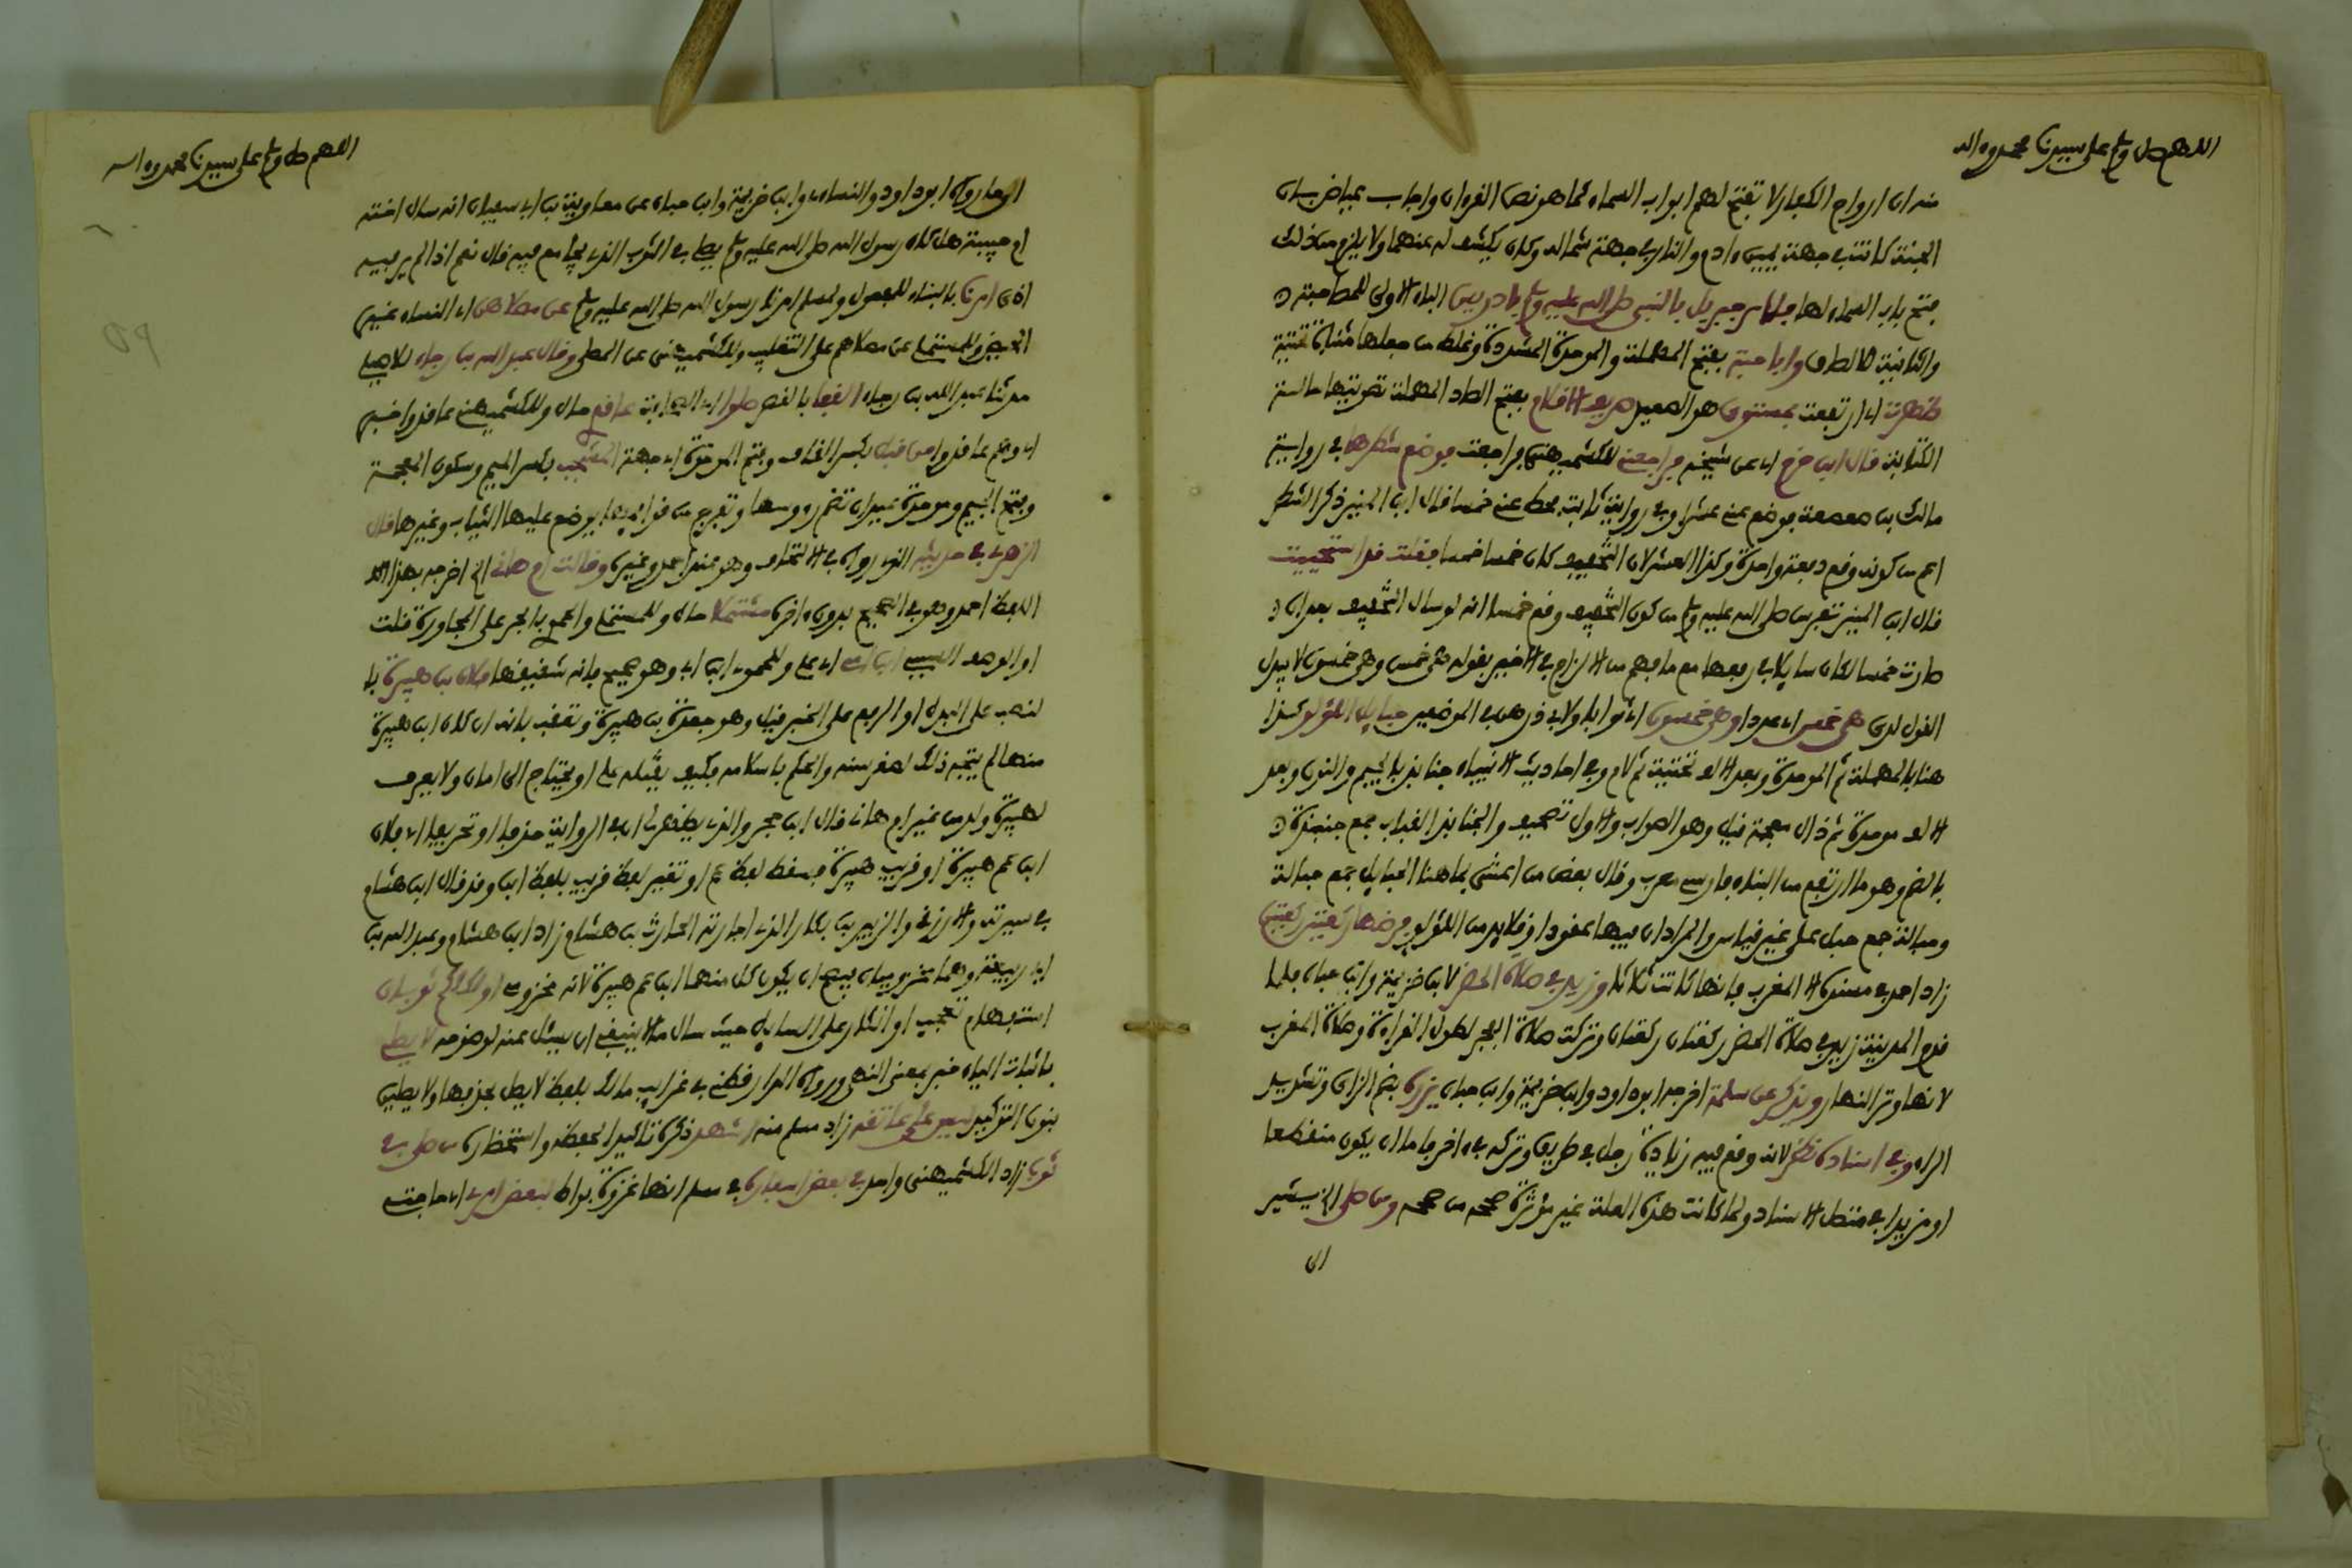 اللهم صل وسلم على سيدنا محمد وءاله
منه ان ارواح الكفار لا تفتح لهم ابواب السماء كما هو نص القرءان واجاب عياض بان
الجنة كانت في جهة يمين ءادم والنار في جهة شماله وكان يكشف له عنهما ولا يلزم من ذلك
فتح باب السماء لها فلما مر جبريل بالنبي صلى الله عليه وسلم بادريس الباء الاولى للمصاحبة
والثانية للالصاق وابا حبة بفتح المهملة والموحدة المشددة وغلط من جعلها مثناة تحتية
ظهرت اي ارتفعت بمستوى هو المصعد صريف الاقلام بفتح الصاد المهملة تصويتها حالة
الكتابة قال ابن حزم اي عن شيخه فراجعت للكشميهني فراجعت فوضع شطرها في رواية
مالك بن صعصعة فوضع عني عشرا وفي رواية ثابت فحط عني خمسا قال ابن المنير ذكر الشطر
اعم من كونه وقع دفعة واحدة وكذا العشر لان التخفيف كان خمسا خمسا فقلت قد استحييت
قال ابن المنير تفرس صلى الله عليه وسلم من كون التخفيف وقع خمسا انه لو سال التخفيف بعد ان
صارت خمسا لكان سايلا في رفعها مع ما فهم من الالزام في الاخير بقوله هي خمس وهي خمسون لا يبدل
القول لدي هي خمس اي عددا وهي خمسون اي ثوابا ولابي ذر هن في الموضعين حبايل اللؤلؤ كذا
هنا بالمهملة ثم الموحدة وبعد الالف تحتية ثم لام وفي احاديث الانبياء جنابذ بالجيم والنون وبعد
الالف موحدة ثم ذال معجمة قيل وهو الصواب والاول تصحيف والجنابذ القباب جمع جنبذة
بالضم وهو ما ارتفع من البناء فارسي معرب وقال بعض من اعتنى بما هنا الحبايل جمع حبالة
وحبالة جمع حبل على غير قياس والمراد ان فيها عقودا وقلايد من اللؤلؤ فرضها ركعتين ركعتين
زاد احمد في مسنده الا المغرب فانها كانت ثلاثا وزيد في صلاة الحضر لابن خزيمة وابن حبان فلما
قدم المدينة زيد في صلاة الحضر ركعتان ركعتان وتركت صلاة الفجر لطول القراءة وصلاة المغرب
لانها وتر النهار ويذكر عن سلمة اخرجه ابو داود وابن خزيمة وابن حبان يزره بضم الزاي وتشديد
الراء وفي اسناده نظر لانه وقع فيه زيادة رجل في طريق وتركه في ءاخر فاما ان يكون منقطعا
او مزيدا في متصل الاسناد ولما كانت هذه العلة غير مؤثرة صححه من صححه ومن صلى الخ يشير
الى
اللهم صل وسلم على سيدنا محمد وءاله
الى ما رواه ابو داود والنساءي وابن خزيمة وابن حبان عن معاوية بن ابي سفيان انه سال اخته
ام حبيبة هل كان رسول الله صلى الله عليه وسلم يصلي في الثوب الذي يجامع فيه قال نعم اذا لم ير فيه
اذى امرنا بالبناء للمفعول ولمسلم امرنا رسول الله صلى الله عليه وسلم عن مصلاهن اي النساء غير
الحيض وللمستملي عن مصلاهم على التغليب وللكشميهني عن المصلى وقال عبد الله بن رجاء للاصيلي
حدثنا عبد الله بن رجاء القفا بالقصر صلوا اي الصحابة عاقدي حال وللكشميهني عاقدوا خبر
اي وهم عاقدوا من قبل بكسر القاف وفتح الموحدة اي جهة المشجب بكسر الميم وسكون المعجمة
وفتح الجيم وموحدة عيدان تضم رؤوسها وتفرج من قوايمها يوضع عليها الثياب وغيرها قال
الزهري في حديثه الذي رواه في الالتحاف وهو عند احمد وغيره وقالت ام هانى اي اخرجه بهذا
اللفظ احمد وهو في الصحيح بدون ءاخره مشتملا حال وللمستملي والحموي بالجر على المجاورة قلت
او الرفع ابن امي اي علي وللحموي ابن ابي وهو صحيح فانه شقيقها فلان بن هبيرة با
لنصب على البدل او الرفع على الخبر قيل وهو جعدة بن هبيرة وتعقب بانه ان كان ابن هبيرة
منها لم يتجه ذلك لصغر سنه والحكم باسلامه فكيف يقتله علي او يحتاج الى امان ولا يعرف
لهبيرة ولد من غير ام هانى قال ابن حجر والذي يظهر لي ان في الرواية حذفا او تحريفا اي فلان
ابن عم هبيرة او قريب هبيرة فسقط لفظ عم او تغير لفظ قريب بلفظ ابن وقد قال ابن هشام
في سيرته والازرقي والزبير بن بكار الذي اجارته الحارث بن هشام زاد ابن هشام وعبد الله بن
ابي ربيعة وهما مخزوميان فيصح ان يكون كل منهما ابن عم هبيرة لانه مخزومي اولكلكم ثوبان
استفهام تعجب او انكار على السايل حيث سال ما لا ينبغي ان يسئل عنه لوضوحه لا يصلي
باثبات الياء خبر بمعنى النهي ورواه الدارقطني في غرايب مالك بلفظ لا يصل بحذفها ولا يصلين
بنون التوكيد ليس على عاتقه زاد مسلم منه اشهد ذكره تاكيدا لحفظه واستحضاره من صلى في
ثوب زاد الكشميهني واحد في بعض اسفاره في مسلم انها غزوة بواط لبعض امري اي حاجتي